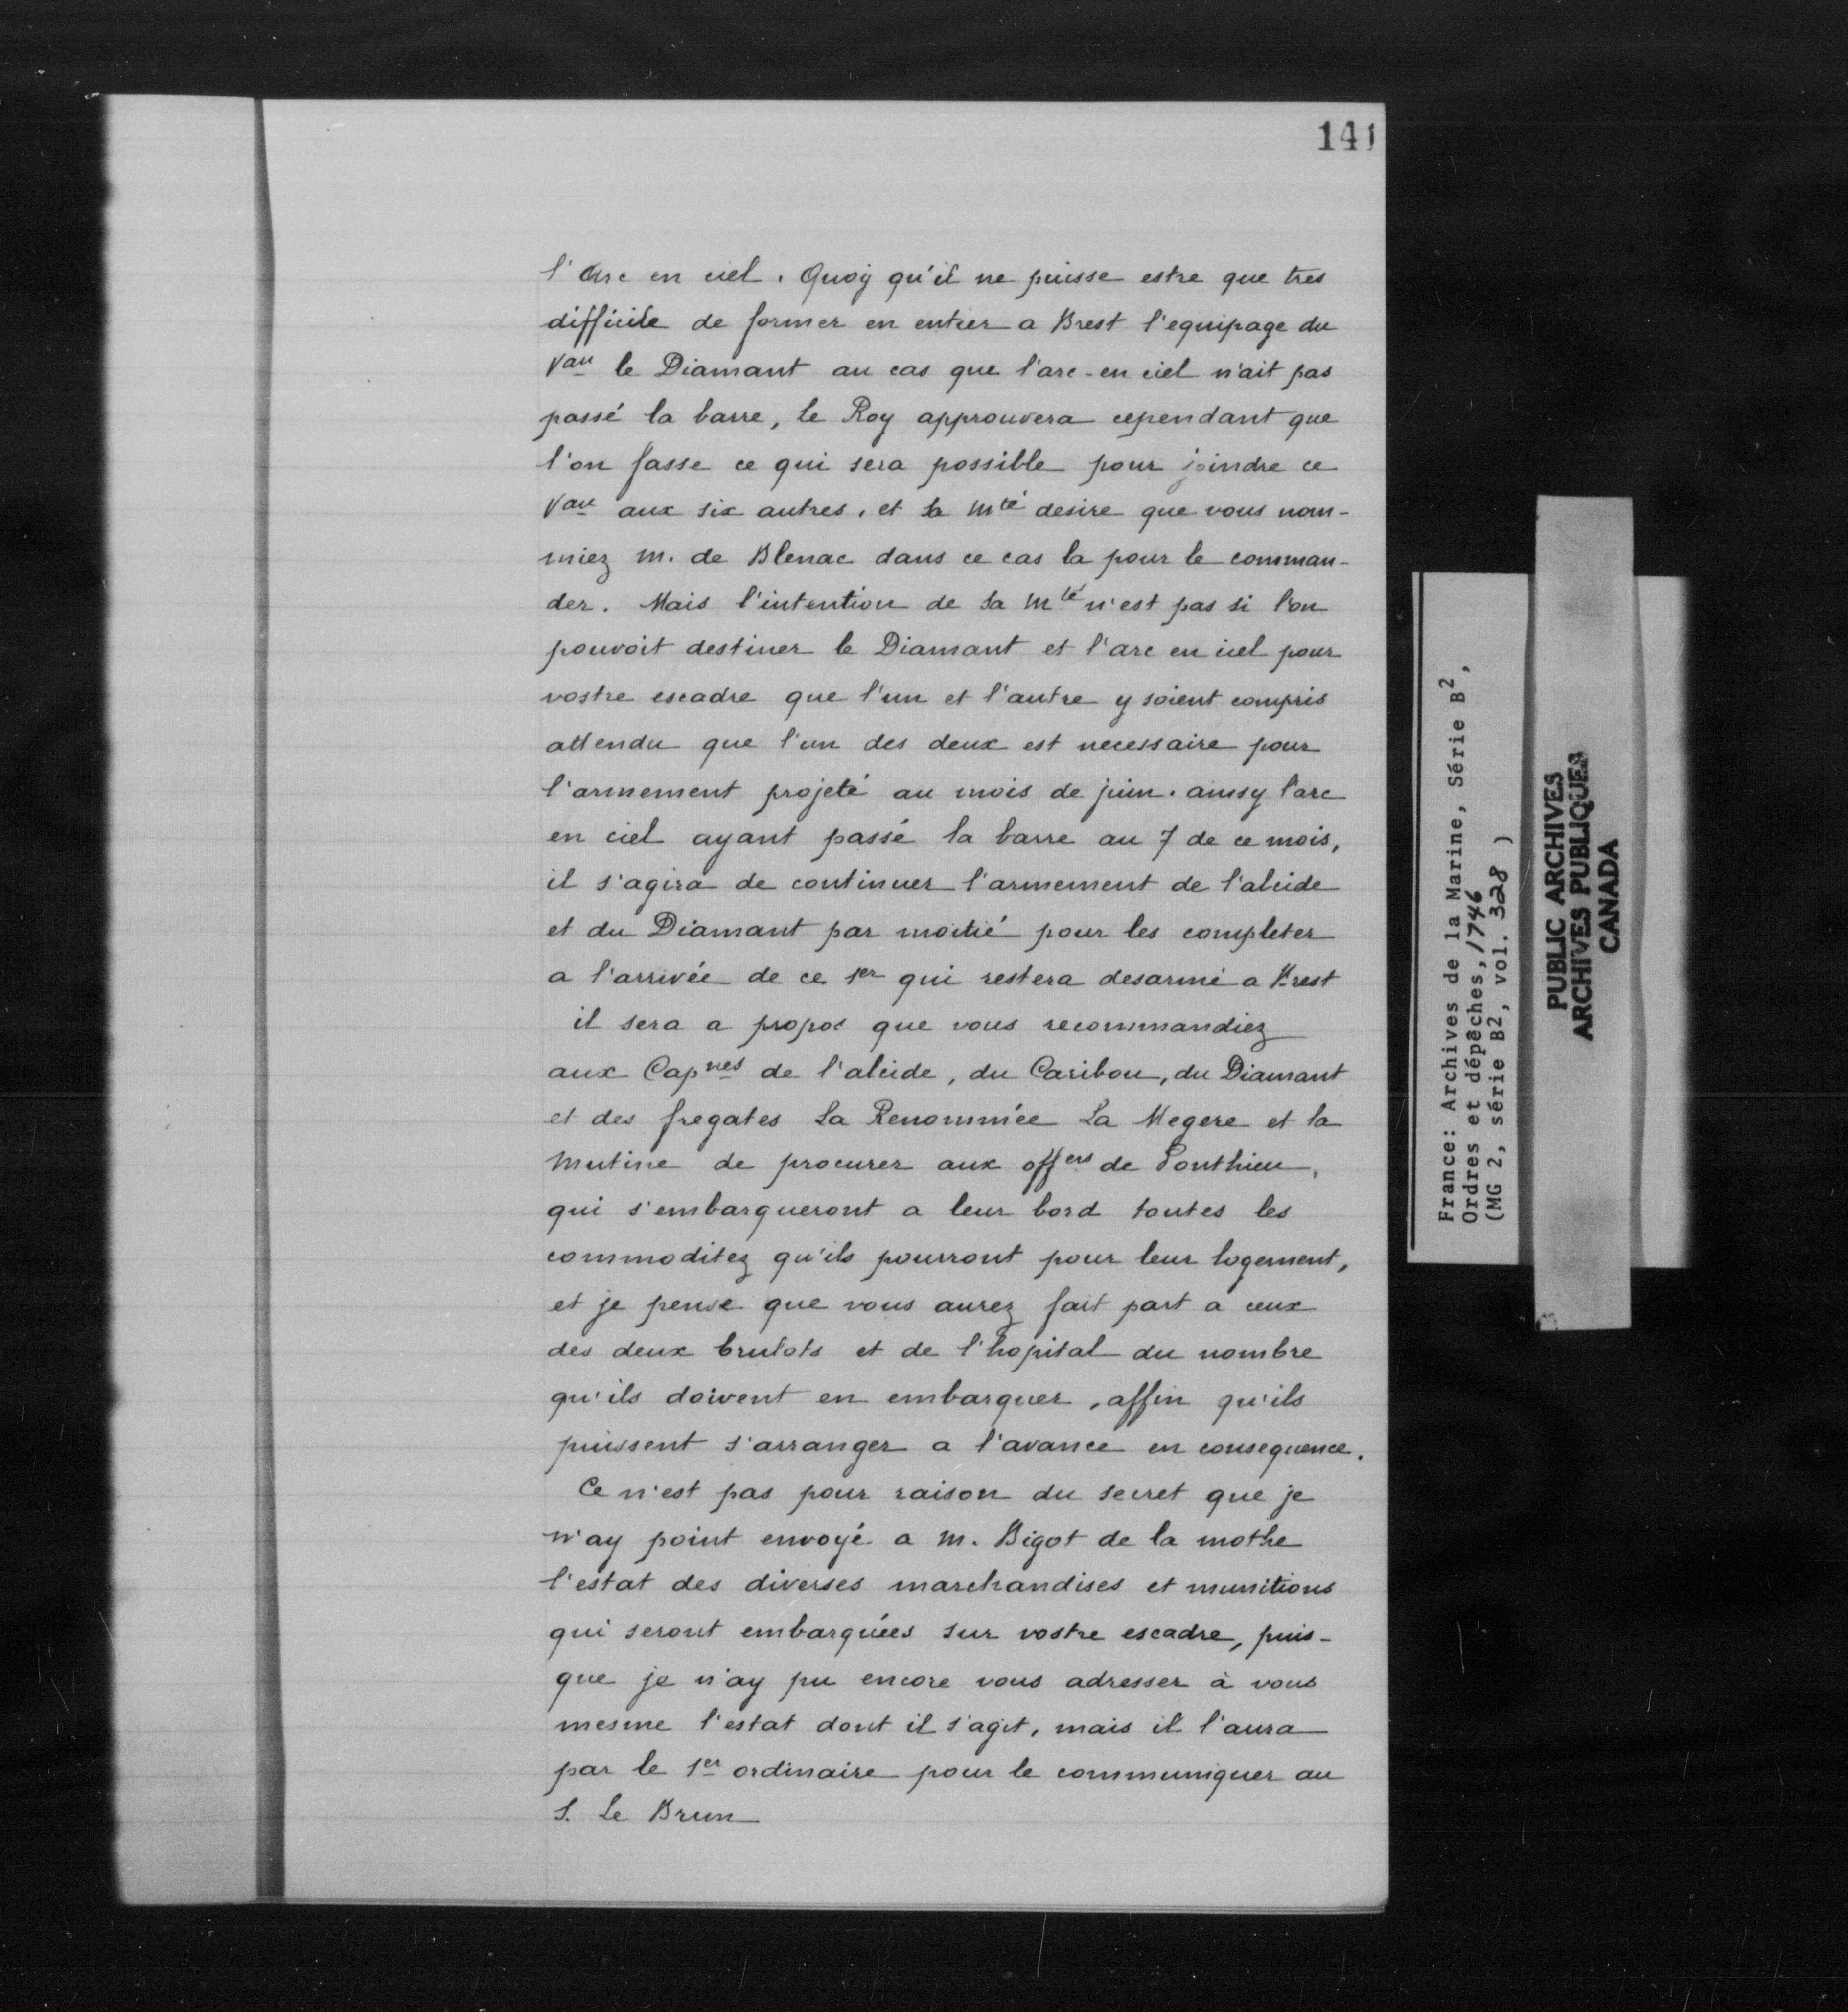 141
l'Arc en ciel. Quoy qu'il ne puisse estre que tres
difficile de former en entier a Brest l'equipage du
Vau le Diamant au cas que l'arc-en ciel n'ait pas
passé la barre, le Roy approuvera cependant que
l'on fasse ce qui sera possible pour joindre ce
Vau aux six autres, et Sa Mté desire que vous nom-
miez M. de Blenac dans ce cas la pour le comman-
der. Mais l'intention de Sa Mté n'est pas si l'on
pouvoit destiner le Diamant et l'arc en ciel pour
vostre escadre que l'un et l'autre y soient compris
attendu que l'un des deux est necessaire pour
l'armement projeté au mois de juin. aussy l'arc
en ciel ayant passé la barre au 7 de ce mois,
il s'agira de continuer l'armement de l'alcide
et du Diamant par moitié pour les completer
a l'arrivée de ce 1er qui restera desarmé a Brest
il sera a propos que vous recommandiez
aux Capnes de l'alcide, du Caribou, du Diamant
et des fregates La Renommée La Megere et la
Mutine de procurer aux offers de Ponthieu,
qui s'embarqueront a leur bord toutes les
commoditez qu'ils pourront pour leur logement,
et je pense que vous aurez fait part a ceux
des deux brulots et de l'hopital du nombre
qu'ils doivent en embarquer, affin qu'ils
puissent s'arranger a l'avance en consequence.
Ce n'est pas pour raison du secret que je
n'ay point envoyé a M. Bigot de la mothe
l'estat des diverses marchandises et munitions
qui seront embarquées sur vostre escadre, puis-
que je n'ay pu encore vous adresser à vous
mesme l'estat dont il s'agit, mais il l'aura
par le 1er ordinaire pour le communiquer au
S. Le Brun
France: Archives de la Marine, Série B2,
Ordres et dépêches, 1746
(MG 2, série B2, vol. 328 )
PUBLIC ARCHIVES
ARCHIVES PUBLIQUES
CANADA